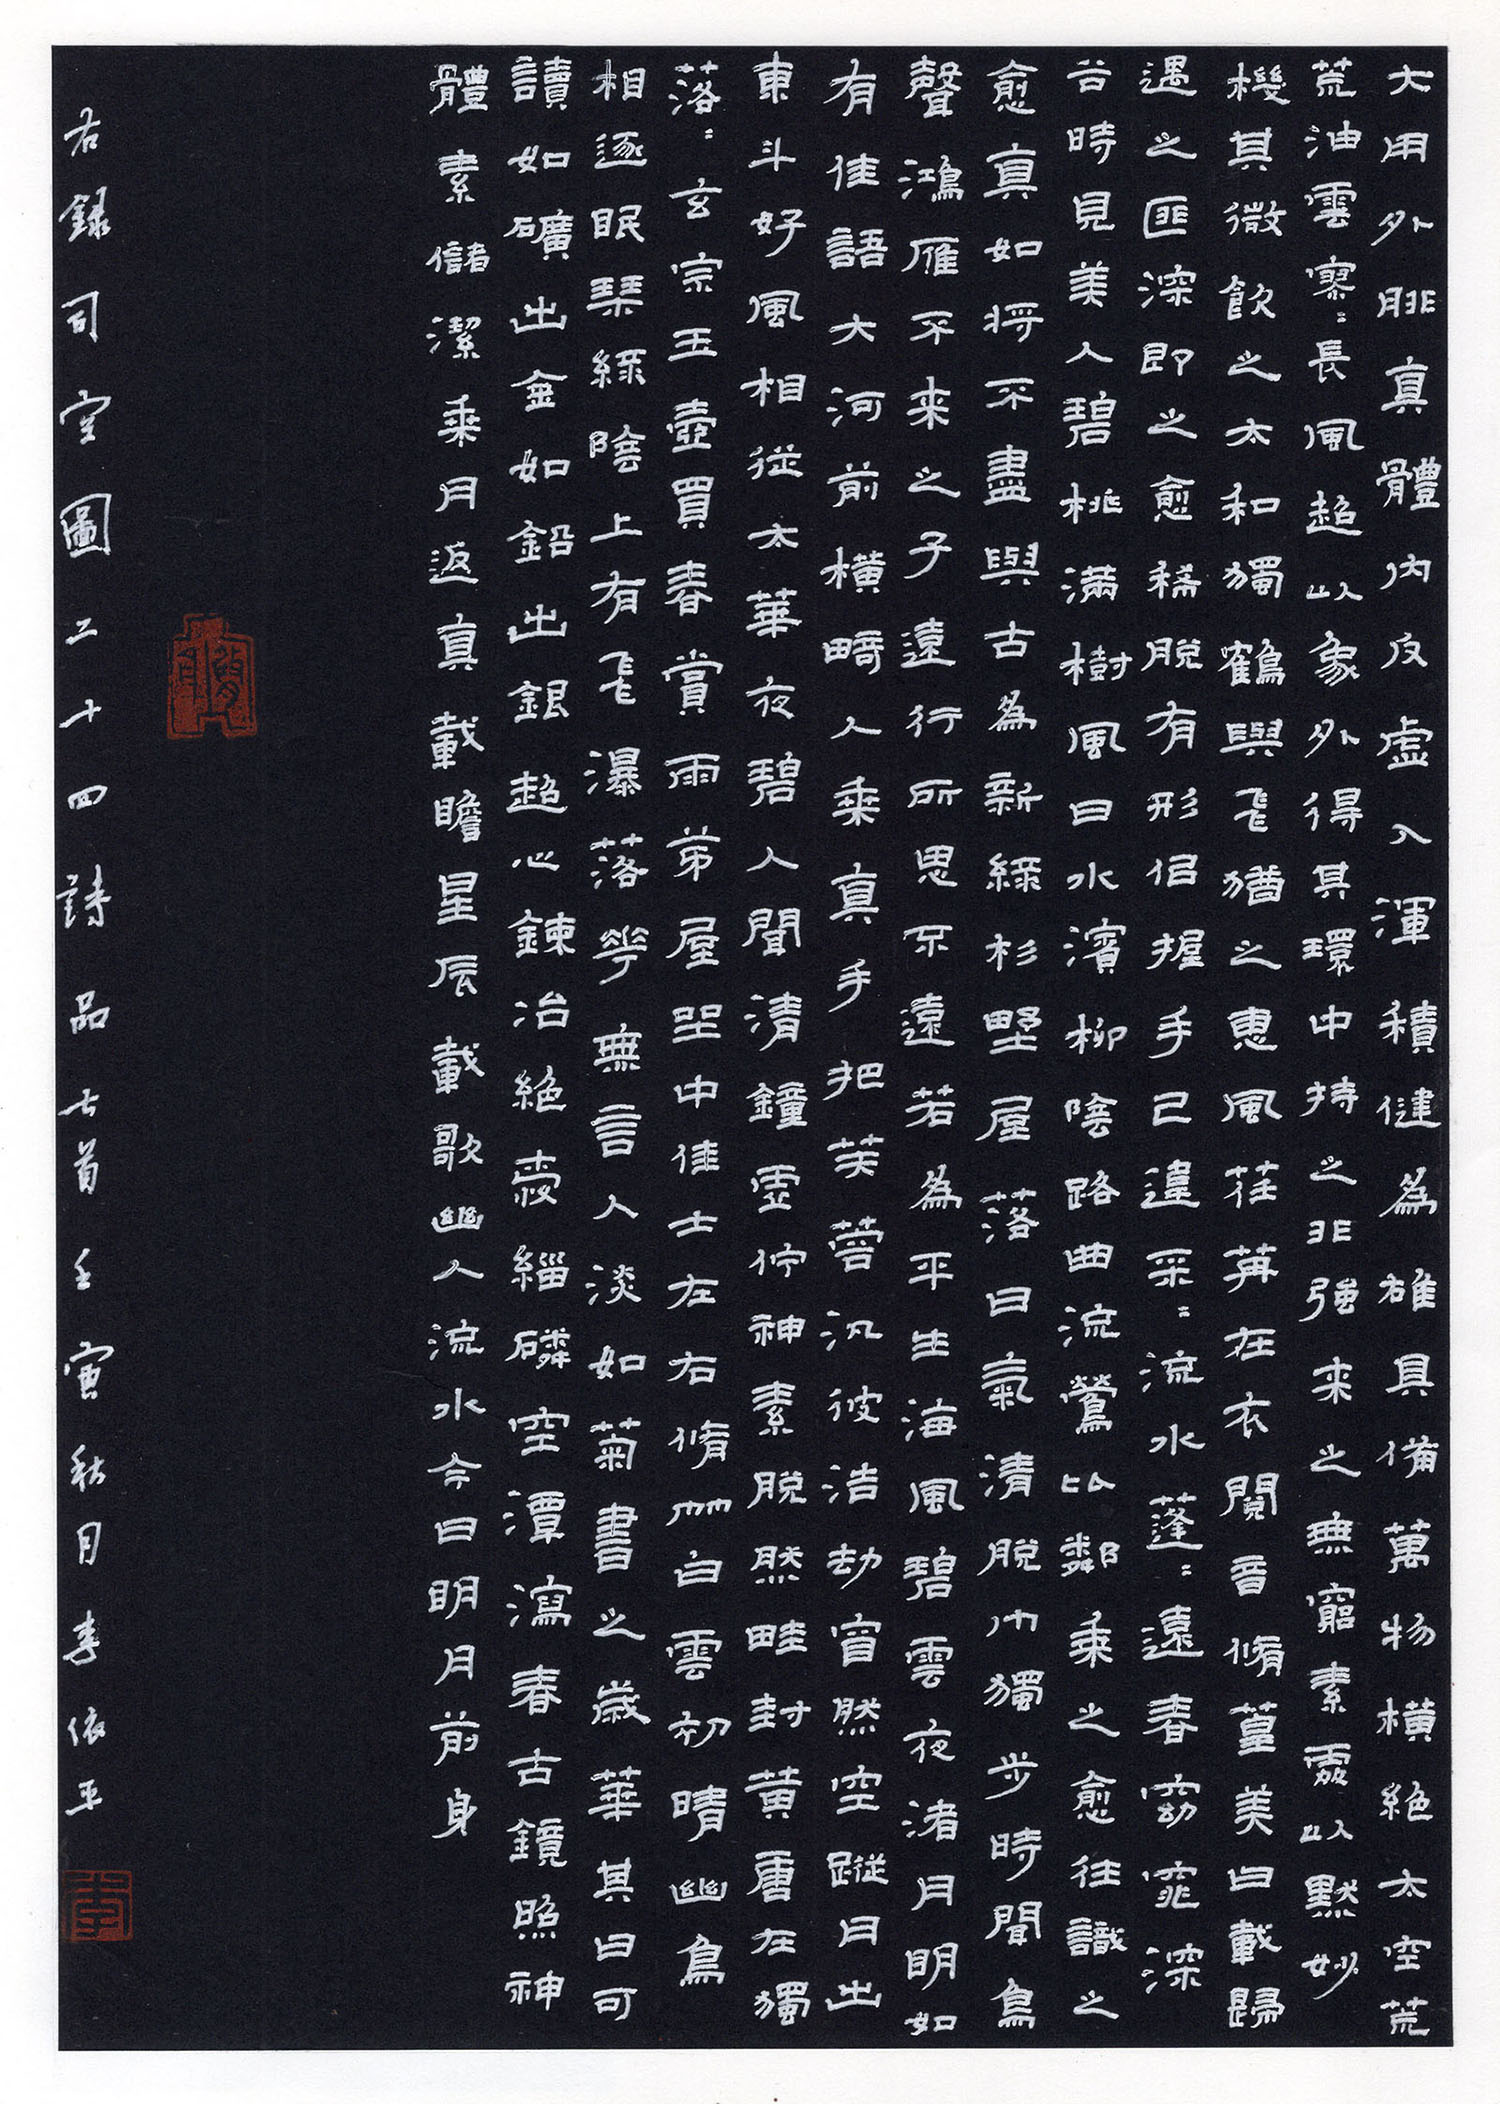 大用外腓真體內反虛入渾積健為雄具備萬物橫絕太空荒
荒油雲寥〻長風超以象外得其環中持之非強來之無窮素處以默妙
機其微飲之太和獨鶴與飛猶之惠風荏苒在衣閱音脩篁美曰載歸
遇之匪深即之愈稀脫有形侶握手已違采〻流水蓬〻遠春窈窕深
谷時見美人碧桃滿樹風日水濱柳陰路曲流鶯比鄰乘之愈往識之
愈真如將不盡與古為新綠杉野屋落日氣清脫巾獨步時聞鳥
聲鴻雁不來之子遠行所思不遠若為平生海風碧雲夜渚月明如
有佳語大河前橫畸人乘真手把芙蓉汎彼浩劫窅然空蹤月出
東斗好風相從太華夜碧人聞清鐘虛佇神素脫然畦封黃唐在獨
落〻玄宗玉壺買春賞雨茅屋坐中佳士左右脩竹白雲初晴幽鳥
相逐眠琴綠陰上有飛瀑落花無言人淡如菊書之歲華其曰可
讀如礦出金如鉛出銀超心鍊冶絕愛緇磷空潭瀉春古鏡照神
體素儲潔乘月返真載瞻星辰載歌幽人流水今日明月前身
右錄司空圖二十四詩品七首壬寅秋月李依平